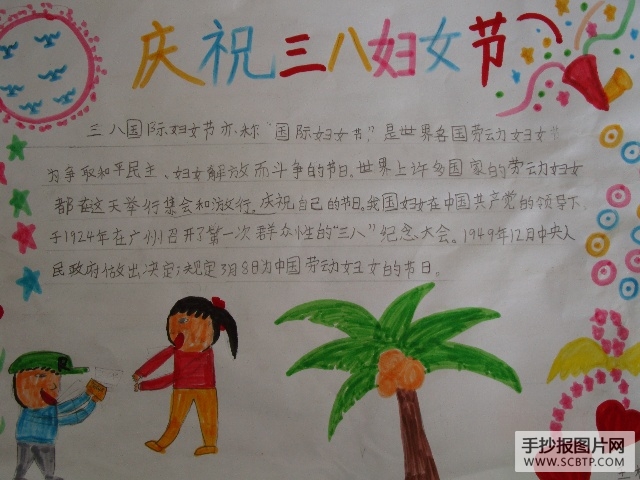 庆祝三八妇女节
三八国际妇女节亦称"国际妇女节",是世界各国劳动妇女节
为争取和平民主、妇女解放而斗争的节日。世界上许多国家的劳动妇女
都在这天举行集会和游行。庆祝自己的节日。我国妇女在中国共产党的领导下,
于1924年在广州召开了第一次群众性的"三八"纪念大会。1949年12月中央人
民政府做出决定;规定3月8日为中国劳动妇女的节日。
R
手抄报图片网
WWW.SCBTP.COM